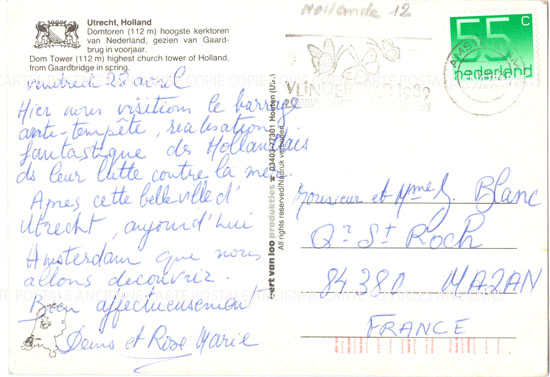 Hollande 12
Utrecht, Holland
Domtoren (112 m) hoogste kerktoren
van Nederland, gezien van Gaard-
brug in voorjaar.
Dom Tower (112 m) highest church tower of Holland,
from Gaardbridge in spring.
vendredi 28 avril
Hier nous visitions le barrage
anti-tempête, réalisation
fantastique des Hollandais
ds leur lutte contre la mer.
Après cette belle ville d'
Utrecht, aujourd'hui
Amsterdam que nous
allons découvrir.
Bien affectueusement
Denis et Rose Marie
ert van loo produkties 03403-77301 Houten (Ut.)
All rights reserved/Nadruk verboden
VLINDERJAAR 1989
55 c
nederland
AMST
Monsieur et Mme J. Blanc
Qr St Roch
84380 MAZAN
FRANCE